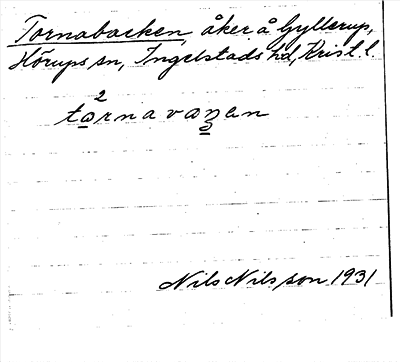 Tornabacken, åker å Gyllerup,
Hörups sn, Ingelstads hd, Krist. l.
2
tornavaꜫen
Nils Nilsson 1931